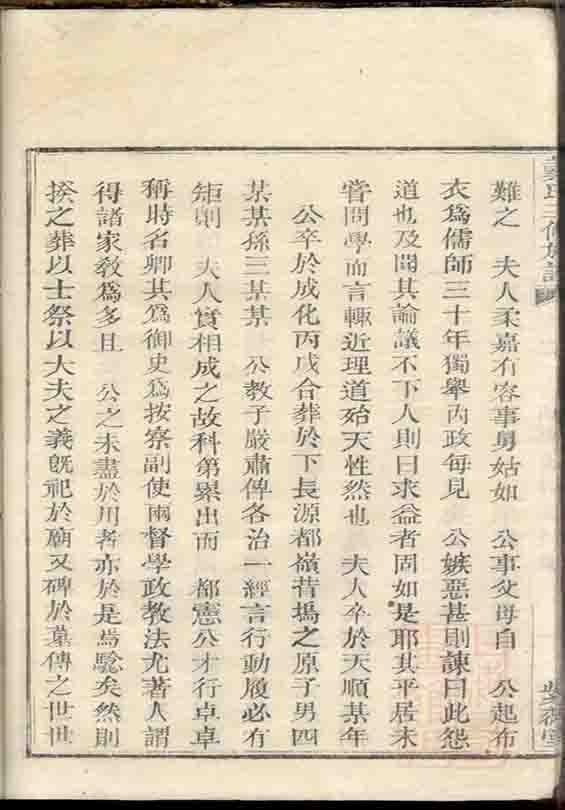 難之　夫人柔嘉有容事舅姑如　公事父母自　公起布
衣爲儒師三十年獨舉內政每見　公嫉惡甚則諫曰此怨
道也及聞其論議不下人則曰求益者固如是耶其平居未
嘗問學而言輒近理道殆天性然也　夫人卒於天順某年
公卒於成化丙戌合葬於下長源都嶺昔塢之原子男四
某某孫三某某　公教子嚴肅俾各治一經言行動履必有
矩矱　夫人實相成之故科第累出而　都憲公才行卓卓
稱時名卿其爲御史爲按察副使兩督學政教法尤著人謂
得諸家教爲多且　公之未盡於用者亦於是焉驗矣然則
揆之葬以士祭以大夫之義旣祀於廟又碑於墓傳之世世